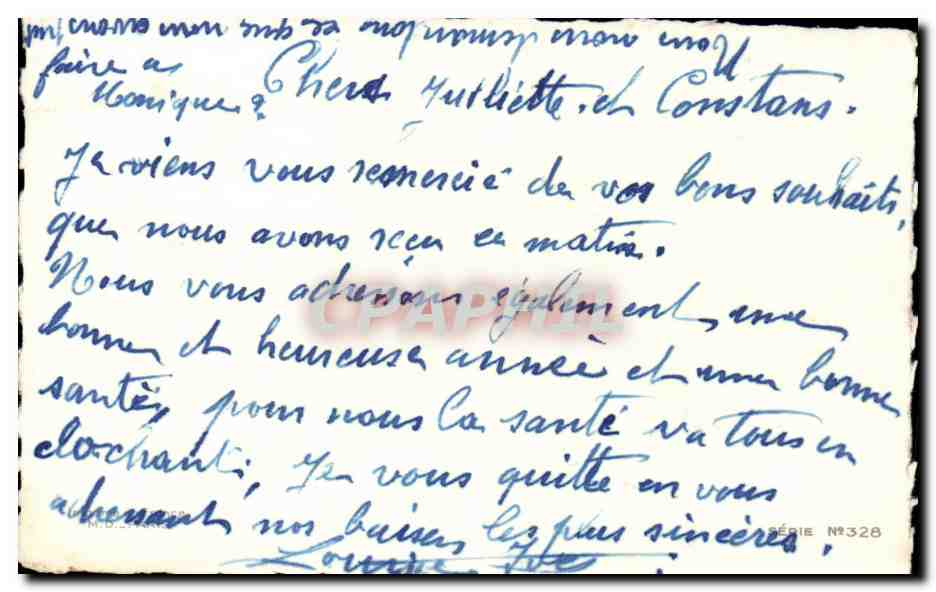 faire a
Monique
Chers Julliette et Constans.
Je viens vous remercié de vos bons souhaits,
que nous avons reçu ce matin.
Nous vous adressons également, une
bonne et heureuse année et une bonne
santé, pour nous la santé va tous en
clochant, Je vous quitte en vous
adressant nos baisers les plus sincères.
SÉRIE Nº 328
Louise
CPAPHIL